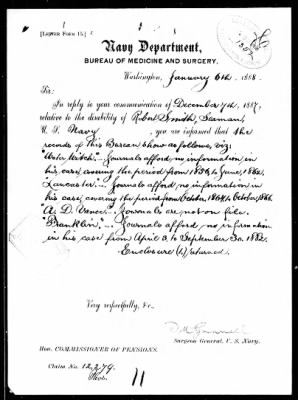 [Letter Form 15.]
Navy Department,
BUREAU OF MEDICINE AND SURGERY.
Washington, January 6th, 1888.
Sir:
In reply to your communication of December 7th, 1887,
relative to the disability of Robert Smith, Seaman,
U. S. Navy, you are informed that the
records of this Bureau show as follows, viz:
"Water Witch."- Journals afford no information in
his case, covering the period from 1856, to June, 1862.
Lancaster."- Journals afford no information in
his case, covering the period from October, 1864, to October, 1866.
"A. D. Vance."- Journals are not on file.
Franklin,"- Journals afford no information
in his case from April 3, to September 30, 1882.
Enclosure (1) returned.
Very respectfully, &c.,
Surgeon General, U. S. Navy.
Hon. COMMISSIONER OF PENSIONS.
Claim No. 12,279.
11